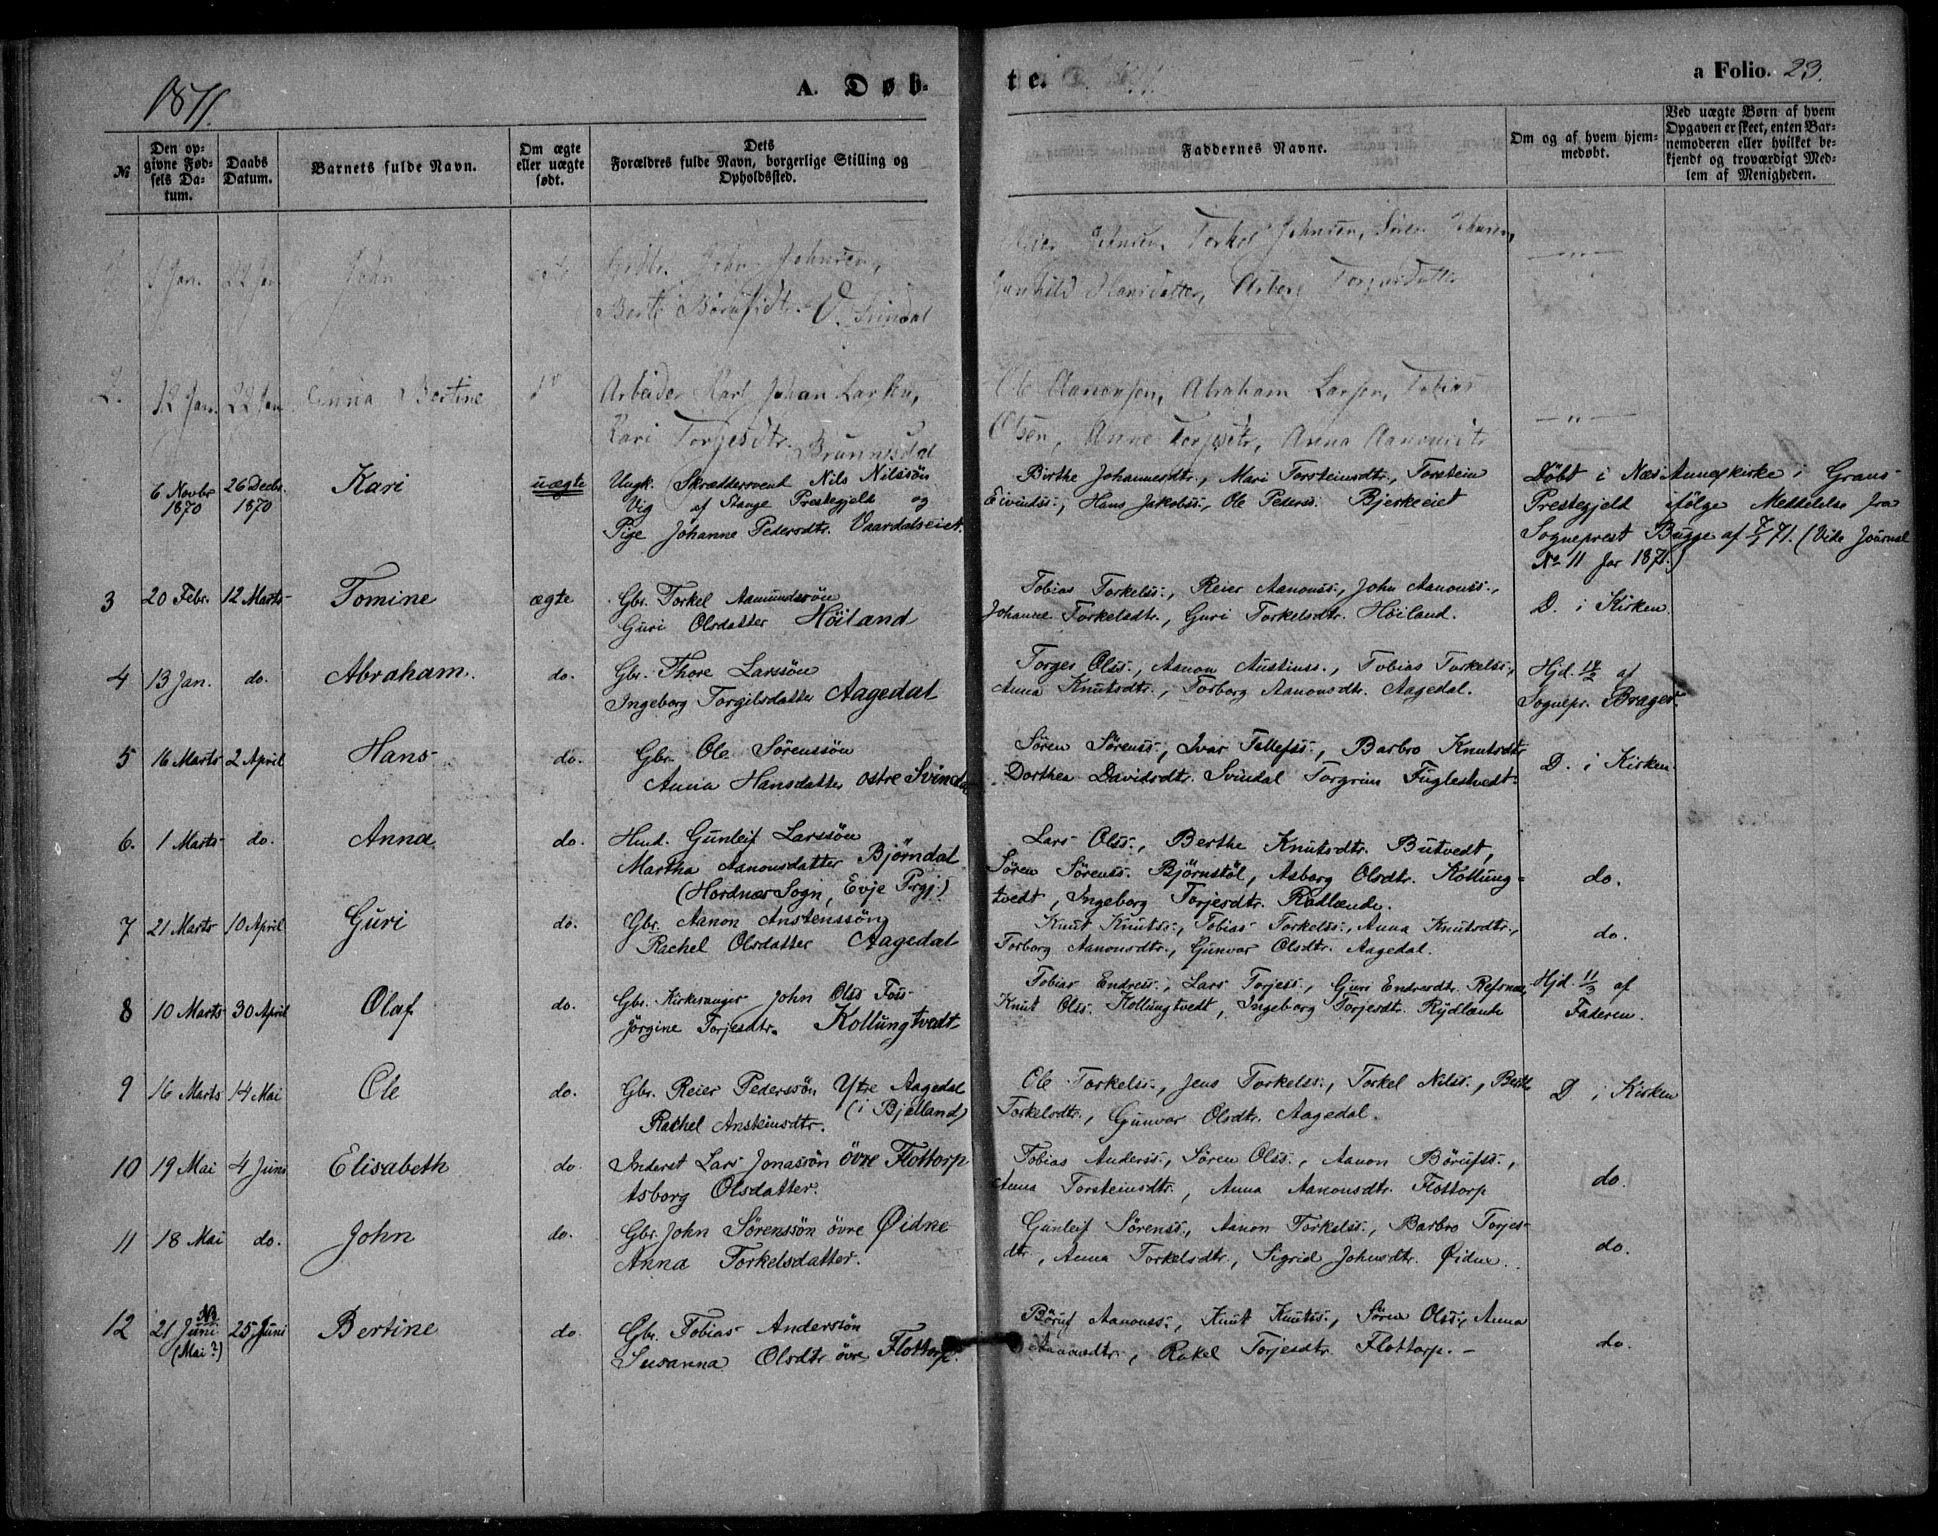 1871.
A. Døb-
te.
a Folio. 23.
№
Den op-
givne Fød-
sels Da-
tum.
Daabs
Datum.
Barnets fulde Navn.
Om ægte
eller uægte
født.
Dets
Forældres fulde Navn, borgerlige Stilling og
Opholdssted.
Faddernes Navne.
Om og af hvem hjem-
medøbt.
Ved uægte Børn af hvem
Opgaven er skeet, enten Bar-
nemoderen eller hvilket be-
kjendt og troværdigt Med-
lem af Menigheden.
Jan. 22 Jan. John John Johnsen,
Johnsen, Torkel Johnsen, Sören Johnsen,
Svindal
Gunhild Hansdatter,
2. 12 Jan. 22 Jan. Anna Bertine Arbeider Karl Johan Larsen,
Ole Aanonsen, Abraham Larsen, Tobias
Kari Torjesdtr. Brunnesdal
Olsen, Anne Torjesdtr, Anna Aanonsdtr
6 Novbr 1870 26 Decbr. 1870 Kari uægte Ungk. Skræddersvend Nils Nilssön
Vig af Stange Prestegjeld og
Pige Johanne Pedersdtr. Vaardalseiet.
Birthe Johannesdtr., Mari Torsteinsdtr., Torstein
Eivindss., Hans Jakobss., Ole Pederss. Bjerkeeiet
Döbt i Næs Annexkirke i Grans
Prestegjeld ifølge Meddelelse fra
Sogneprest Bugge af 7/1 71. (Vide Journal
No 11 for 1871.)
3 20 Febr. 12 Marts Tomine ægte Gbr. Torkel Aamundssön
Guri Olsdatter Höiland
Tobias Torkelss., Reier Aanonss., John Aanonss.,
Johanne Torkelsdtr., Guri Torkelsdtr. Höiland.
D. i Kirken.
4 13 Jan. do. Abraham. do. Gbr. Thore Larssön
Ingeborg Torgilsdatter Aagedal
Torges Olss., Aanon Austinss., Tobias Torkelss.,
Anna Knutsdtr., Torborg Aanonsdtr. Aagedal.
Hjd. 14/2 af
Sognepr. Brager.
5 16 Marts 2 April Hans do. Gbr. Ole Sörenssön
Anna Hansdatter östre Svindal
Sören Sörenss., Ivar Tellefss., Barbro Knutsdtr
Dorthea Davidsdtr. Svindal Torgrim Fuglestvedt.
D. i Kirken.
6. 1 Marts do. Anna do. Hmd. Gunleif Larssön
Martha Aanonsdatter Björndal
(Hordnæs Sogn, Evje Prgj.)
Lars Olss., Berthe Knutsdtr. Butvedt,
Sören Sörenss. Björnstöl, Asborg Olsdtr. Kollung-
tvedt, Ingeborg Torjesdtr. Rödlende.
do.
7 21 Marts 10 April Guri do. Gbr. Aanon Anstenssön
Rachel Olsdatter Aagedal
Knut Knutss., Tobias Torkelss., Anna Knutsdtr.,
Torborg Aanonsdtr., Gunvor Olsdtr. Aagedal.
do.
8 10 Marts 30 April Olaf do. Gbr. Kirkesanger John Olss Foss
Jörgine Torjesdtr. Kollungtvedt
Tobias Endress., Lars Torjess., Guri Endresdtr. Refsnæs,
Knut Olss. Kollungtvedt, Ingeborg Torjesdtr. Rydlende
Hjd. 11/3 af
Faderen.
9 16 Marts 14 Mai Ole do. Gbr. Reier Pederssön Ytre Aagedal
(i Bjelland)
Rachel Ansteinsdtr.
Ole Torkelss., Jens Torkelss., Torkel Nilss., Berthe
Torkelsdtr., Gunvor Olsdtr. Aagedal.
D i Kirken
10 19 Mai 4 Juni Elisabeth do. Inderst Lars Jonassön övre Flottorp
Asborg Olsdatter.
Tobias Anderss., Sören Olss., Aanon Börufss.,
Anna Torsteinsdtr., Anna Aanonsdtr. Flottorp
do.
11 18 Mai do. John do. Gbr. John Sörenssön övre Øidne
Anna Torkelsdatter.
Gunleif Sörenss., Aanon Torkelss., Barbro Torjes-
dtr., Anna Torkelsdtr., Sigrid Johnsdtr. Øidne.
do.
12 21 Juni NB (Mai?) 25 Juni Bertine do. Gbr. Tobias Anderssön
Susanna Olsdtr övre Flottorp.
Böruf Aanonss., Knut Knutss., Sören Olss., Anna
Aanonsdtr., Rakel Torjesdtr. Flottorp. –
do.